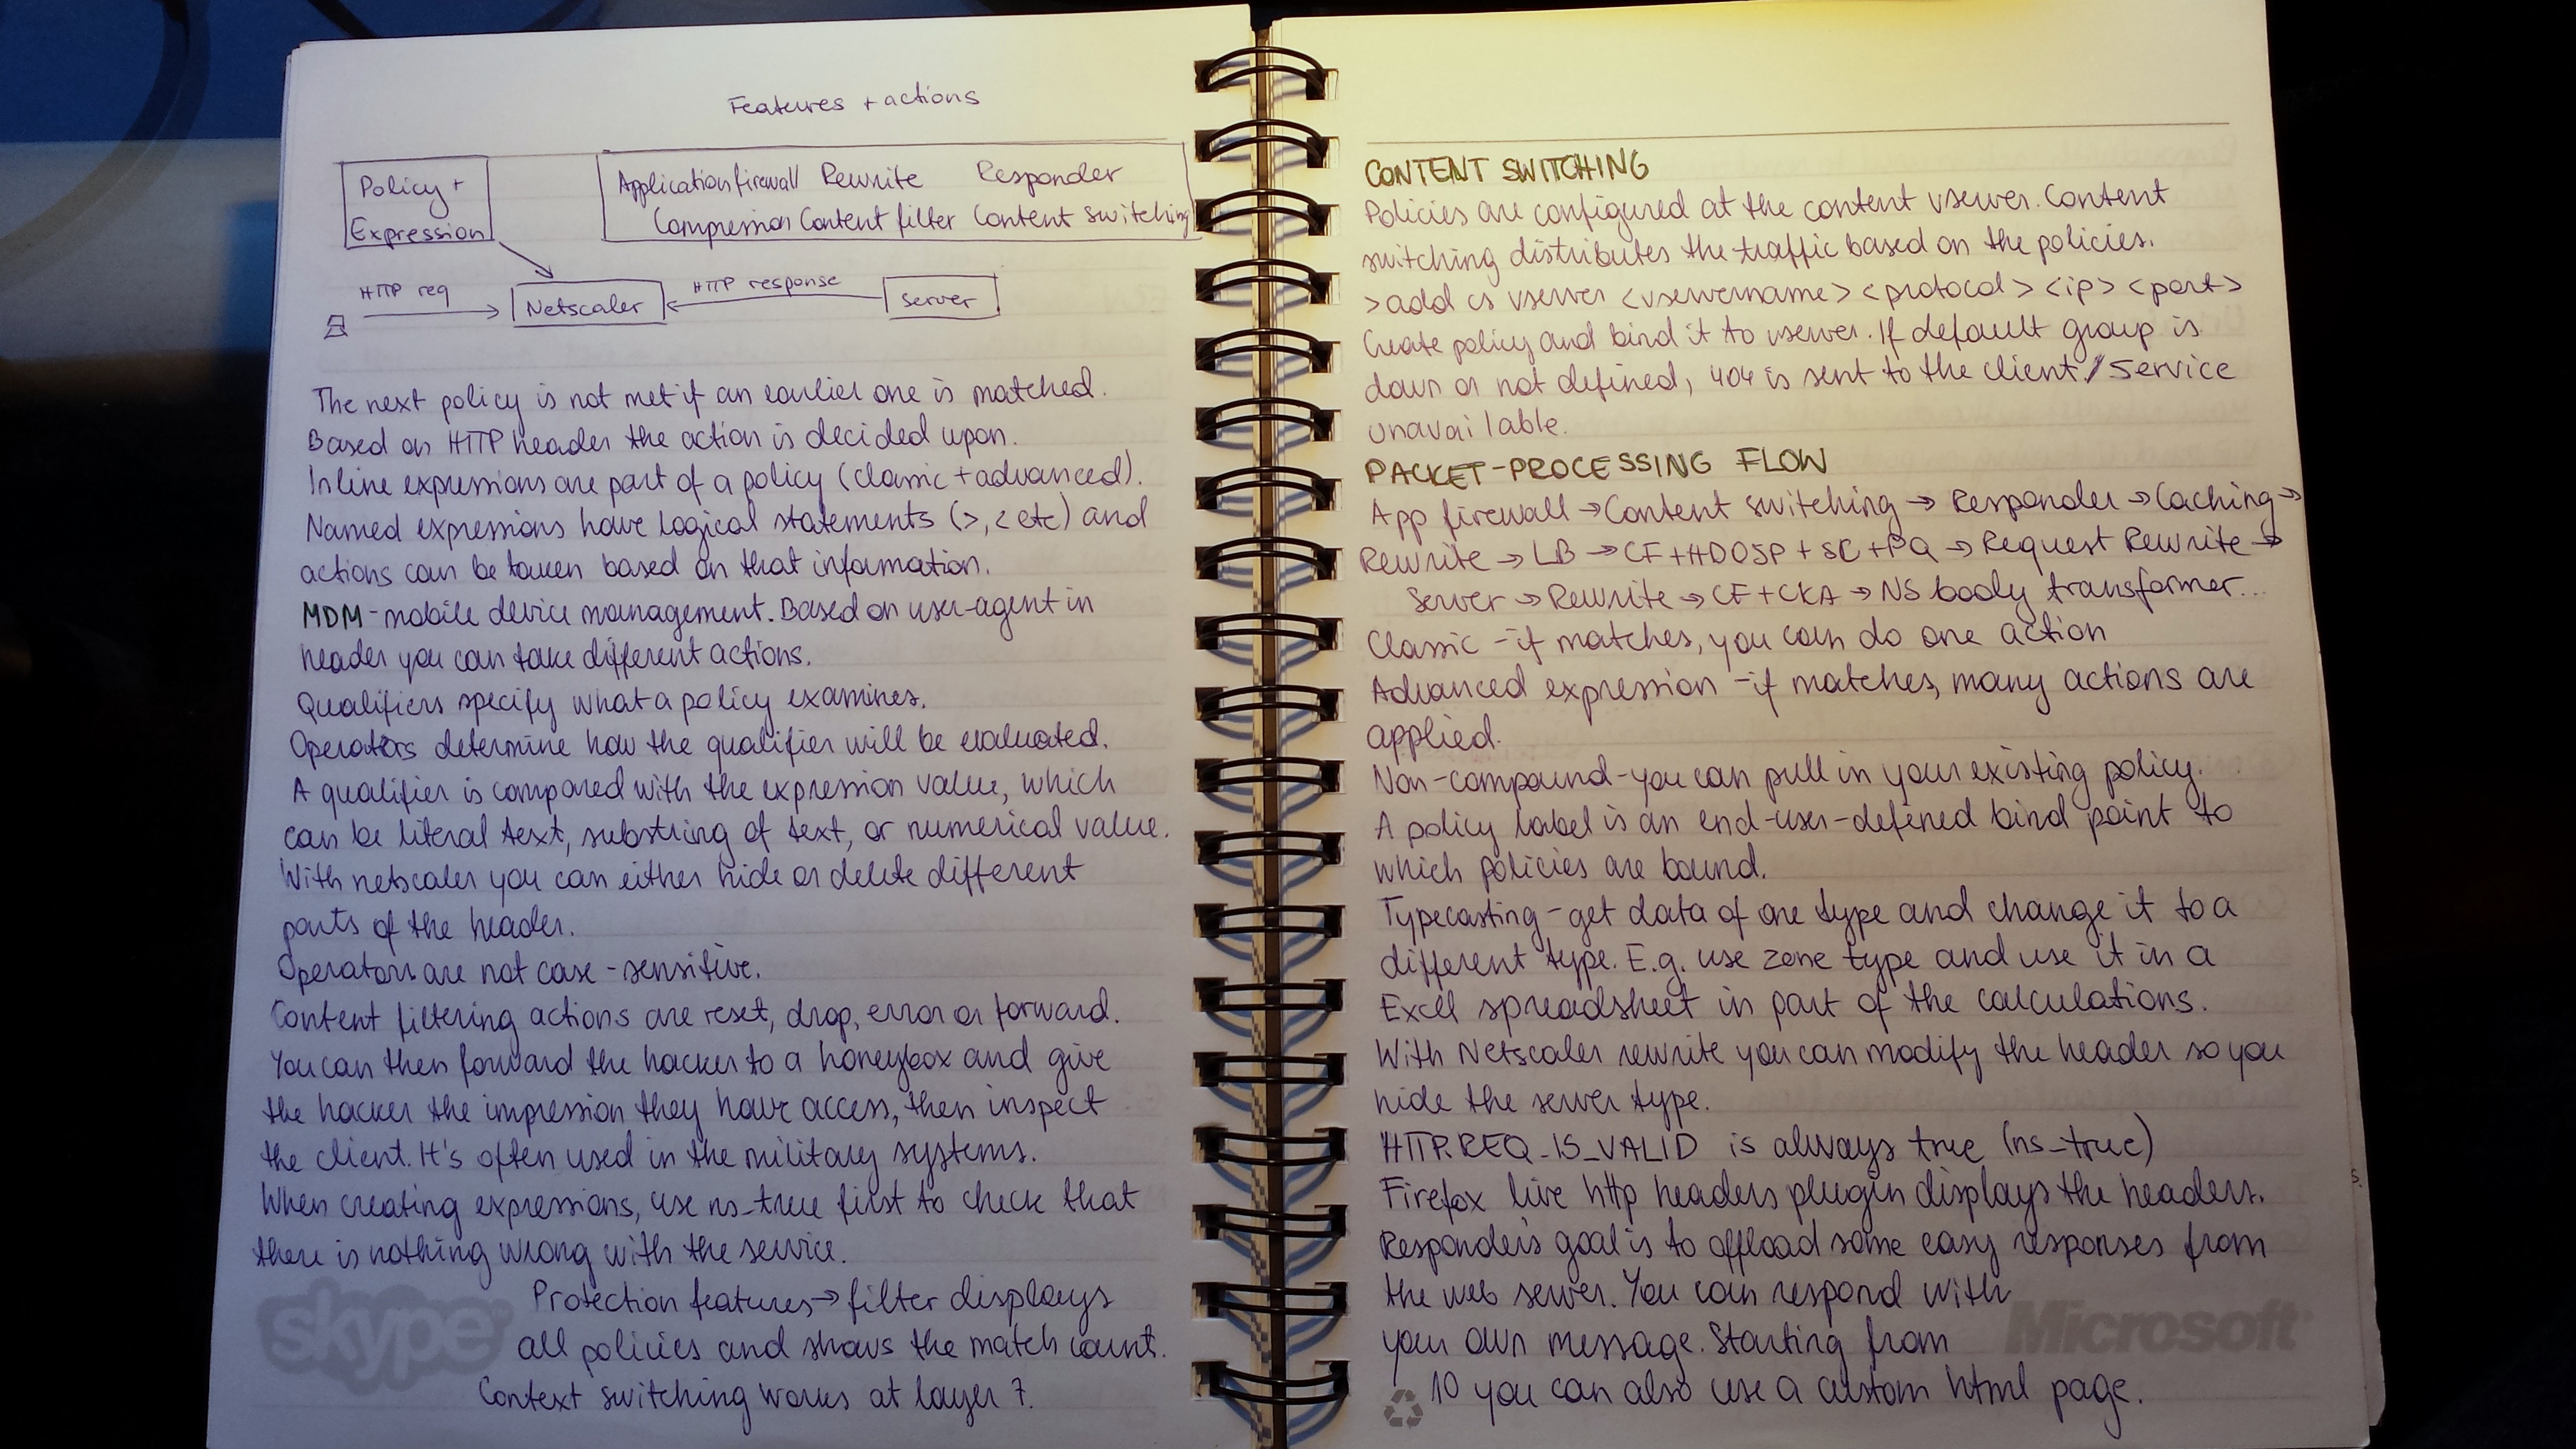 Features + actions
Policy +
Expression
Application firewall Rewrite Responder
Compression Content filter Content switching
HTTP req
Netscaler
HTTP response
server
The next policy is not met if an earlier one is matched.
Based on HTTP header the action is decided upon.
Inline expressions are part of a policy (classic + advanced).
Named expressions have logical statements (>, < etc) and
actions can be taken based on that information.
MDM - mobile device management. Based on user-agent in
header you can take different actions.
Qualifiers specify what a policy examines.
Operators determine how the qualifier will be evaluated.
A qualifier is compared with the expression value, which
can be literal text, substring of text, or numerical value.
With netscaler you can either hide or delete different
parts of the header.
Operators are not case-sensitive.
Content filtering actions are reset, drop, error or forward.
You can then forward the hacker to a honeybox and give
the hacker the impression they have access, then inspect
the client. It's often used in the military systems.
When creating expressions, use ns_true first to check that
there is nothing wrong with the service.
Protection features → filter displays
all policies and shows the match count.
Context switching works at layer 7.
skype
CONTENT SWITCHING
Policies are configured at the content vserver. Content
switching distributes the traffic based on the policies.
>add cs vserver <vservername> <protocol> <ip> <port>
Create policy and bind it to vserver. If default group is
down or not defined, 404 is sent to the client / Service
unavailable.
PACKET-PROCESSING FLOW
App firewall → Content switching → Responder → Caching →
Rewrite → LB → CF + HDOSP + SC + PQ → Request Rewrite →
Server → Rewrite → CF + CKA → NS body transformer...
Classic - if matches, you can do one action
Advanced expression - if matches, many actions are
applied.
Non-compound - you can pull in your existing policy.
A policy label is an end-user-defined bind point to
which policies are bound.
Typecasting - get data of one type and change it to a
different type. E.g. use zone type and use it in a
Excell spreadsheet in part of the calculations.
With Netscaler rewrite you can modify the header so you
hide the server type.
HTTP.REQ_IS_VALID is always true (ns_true)
Firefox live http headers plugin displays the headers.
Responder's goal is to offload some easy responses from
the web server. You can respond with
your own message. Starting from
10 you can also use a custom html page.
Microsoft